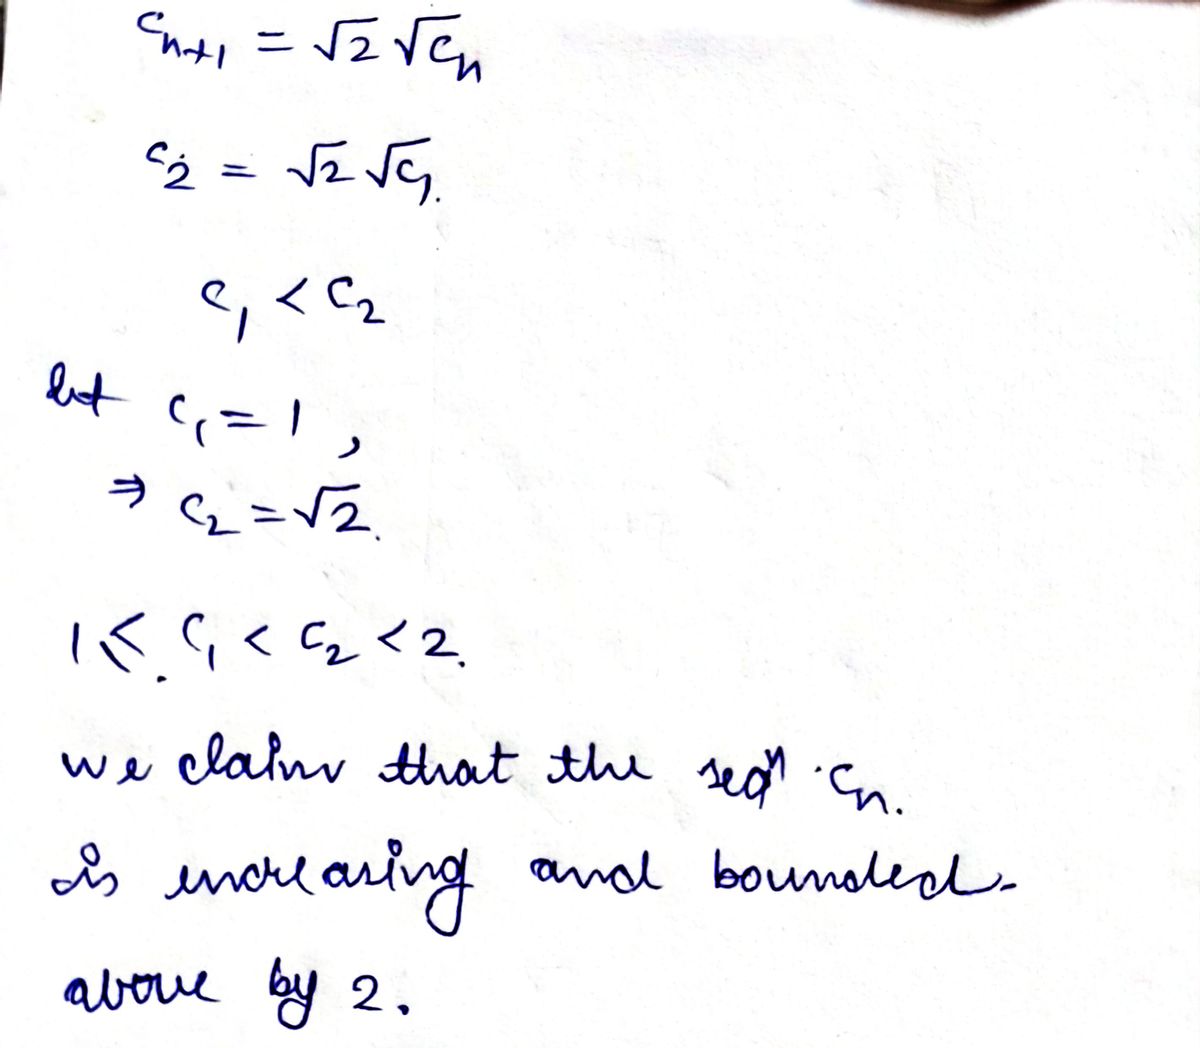 c_{n+1} = √2 √c_n
c_2 = √2 √c_1.
c_1 < c_2
let c_1 = 1 ,
⇒ c_2 = √2.
1 ≤ c_1 < c_2 < 2.
we claim that the seqⁿ c_n.
is increasing and bounded
above by 2.